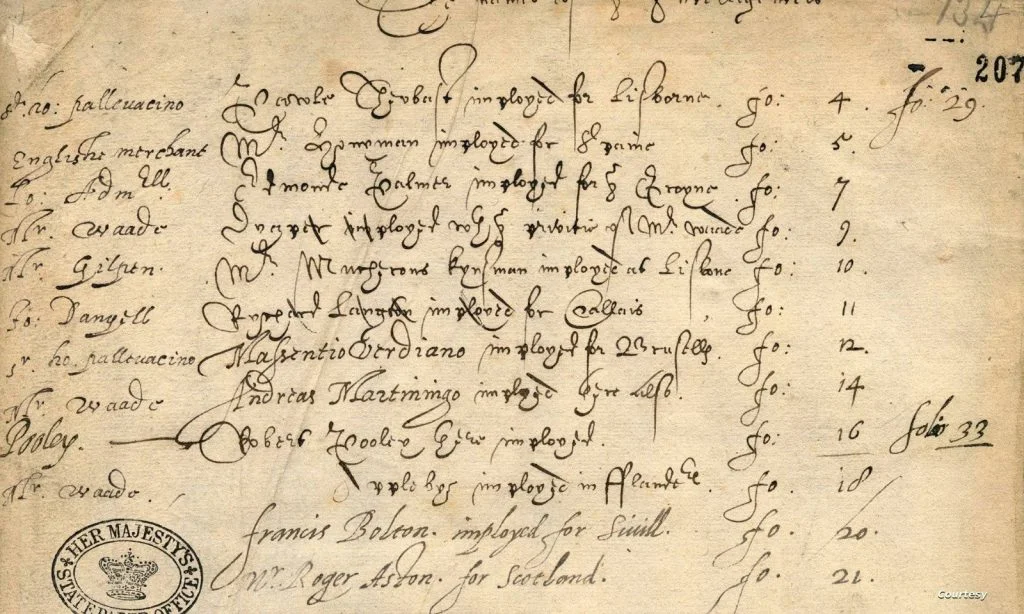 134
207
Sr. ho: pallevacino Pawle Theobast imployed for Lisborne. fo: 4. fo: 29.
Englishe merchant Mr. Honyman imployed for Spaine fo: 5.
Lo: Admll. Edmonde Palmer imployed for ye Groyne. fo: 7
Mr. Waade Draper imployed wth ye privitie of Mr. Waade fo: 9.
Mr. Gilpen. Mr. Mucherons kynsman imployed as Lisbone fo: 10.
Jo: Danyell Rychard Langton imployed for Callais, fo: 11
Sr. ho. pallevacino Massentio Verdiano imployed for Brusells. fo: 12.
Mr. Waade Andreas Martiningo imployed here also. fo: 14
Pooley. Robert Pooley here imployed. fo: 16 folio 33
Mr. Waade. Aplebys imployed in Fflanders. fo. 18
francis Bolton. imployed for Sivill. fo. 20.
Mr. Roger Aston. for Scotland. fo. 21.
HER MAJESTY'S STATE PAPER OFFICE
Courtesy